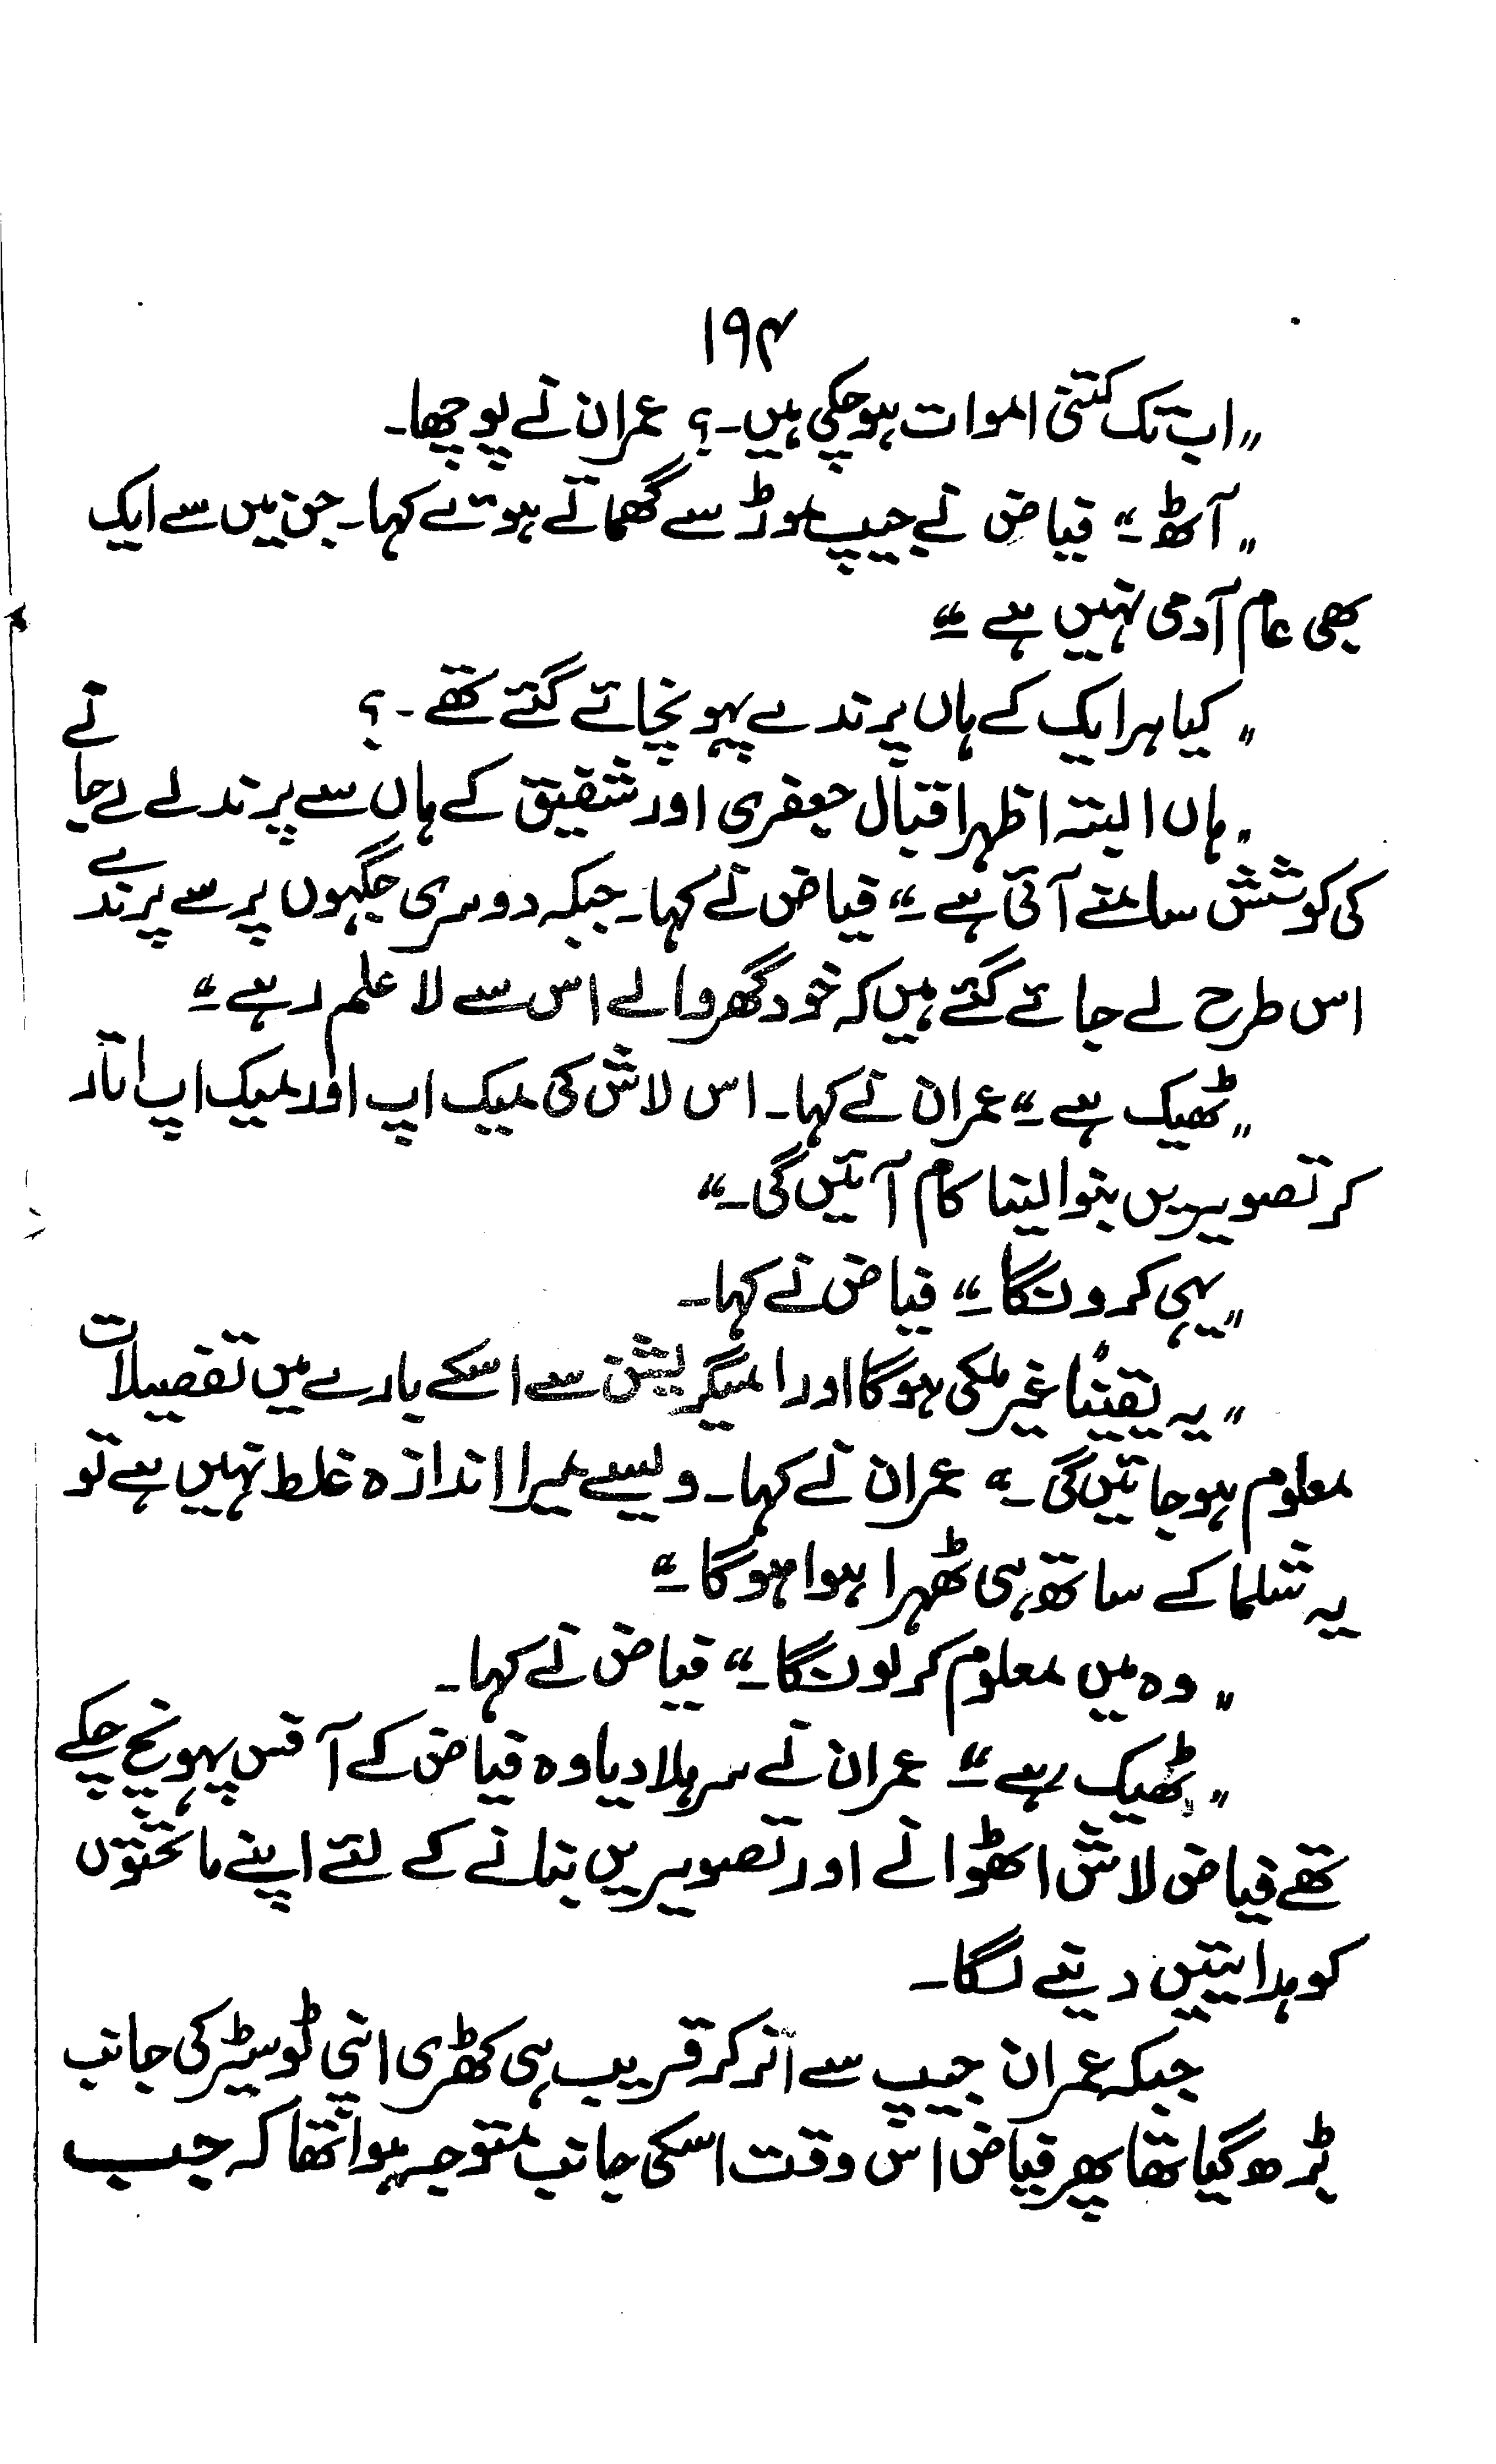 ۱۹۴
"اب تک کتنی اموات ہو چکی ہیں۔؟ عمران نے پوچھا۔
"آٹھ۔" فیاض نے جیپ موڑ سے گھماتے ہوئے کہا۔ جن میں سے ایک
بھی عام آدمی نہیں ہے۔"
"کیا ہر ایک کے ہاں پرندے پہونچائے گئے تھے۔؟
"ہاں البتہ اظہر اقبال جعفری اور شفیق کے ہاں سے پرندے لے جانے
کی کوشش سامنے آئی ہے۔" فیاض نے کہا۔ جبکہ دوسری جگہوں پر سے پرندے
اس طرح لے جائے گئے ہیں کہ خود گھر والے اس سے لا علم رہے۔"
"ٹھیک ہے۔" عمران نے کہا۔ اس لاش کی میک اپ اور میک اپ اتار
کر تصویریں بنوا لینا کام آئیں گی۔"
"یہی کرونگا۔" فیاض نے کہا۔
"یہ یقیناً غیر ملکی ہوگا اور امیگریشن سے اسکے بارے میں تفصیلات
معلوم ہو جائیں گی۔" عمران نے کہا۔ ویسے میرا اندازہ غلط نہیں ہے تو
یہ شلما کے ساتھ ہی ٹھہرا ہوا ہوگا۔"
"وہ میں معلوم کر لونگا۔" فیاض نے کہا۔
"ٹھیک رہے۔" عمران نے سر ہلا دیا وہ فیاض کے آفس پہونچ چکے
تھے فیاض لاش اٹھوانے اور تصویریں بنانے کے لئے اپنے ماتحتوں
کو ہدایتیں دینے لگا۔
جبکہ عمران جیپ سے اتر کر قریب ہی کھڑی اپنی ٹوسیٹر کی جانب
بڑھ گیا تھا پھر فیاض اس وقت اسکی جانب متوجہ ہوا تھا کہ جب